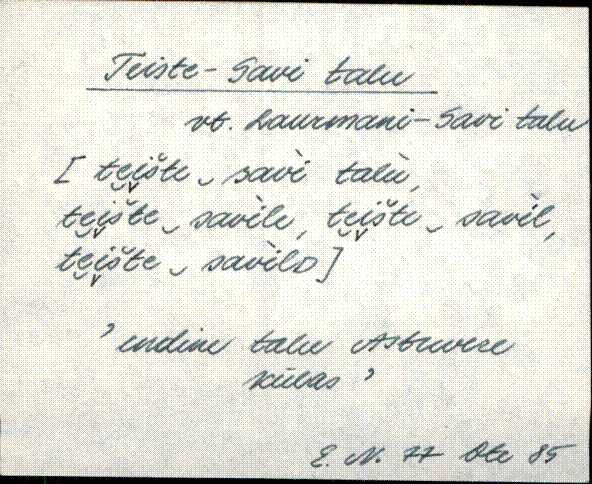 Teiste-Savi talu
vt. Laurmani-Savi talu
[ tei̬šte ‿ savì talù,
tei̬šte ‿ savìle, tei̬šte ‿ savìl,
tei̬šte ‿ savìlᴅ ]
' endine talu Astuvere
külas '
E. N. 77 Ote 85